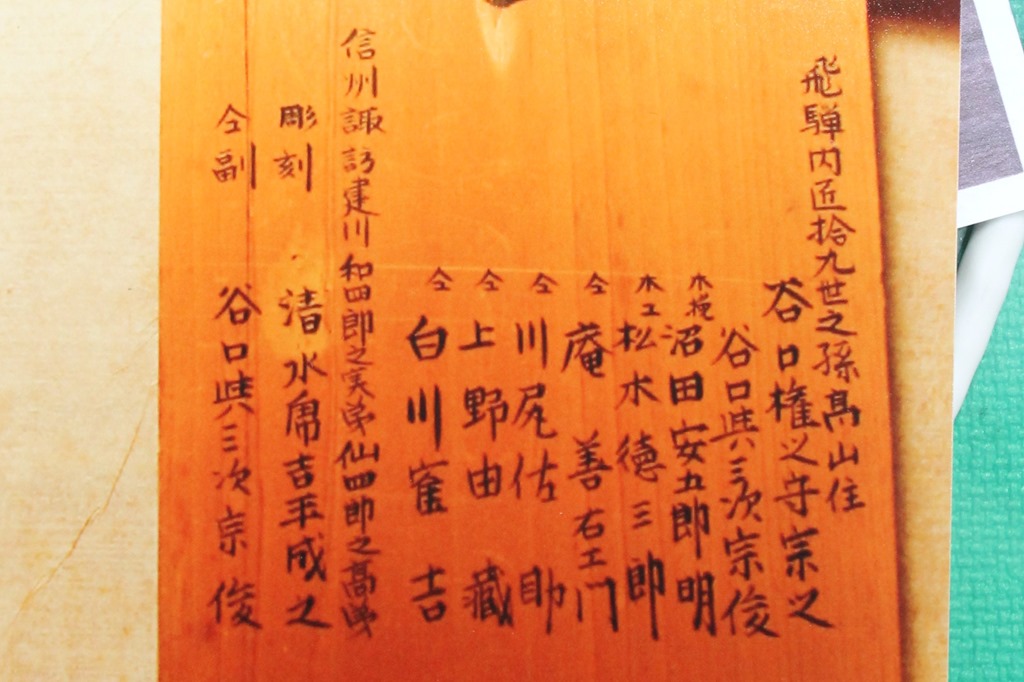 飛騨内匠拾九世之孫高山住
谷口権之守宗之
谷口與三次宗俊
木挽 沼田安五郎明
木工 松木徳三郎
仝 庵善右エ門
仝 川尻佐助
仝 上野由蔵
仝 白川寉吉
信州諏訪建川和四郎之実弟仙四郎之高弟
彫刻 清水席吉平成之
仝副 谷口與三次宗俊